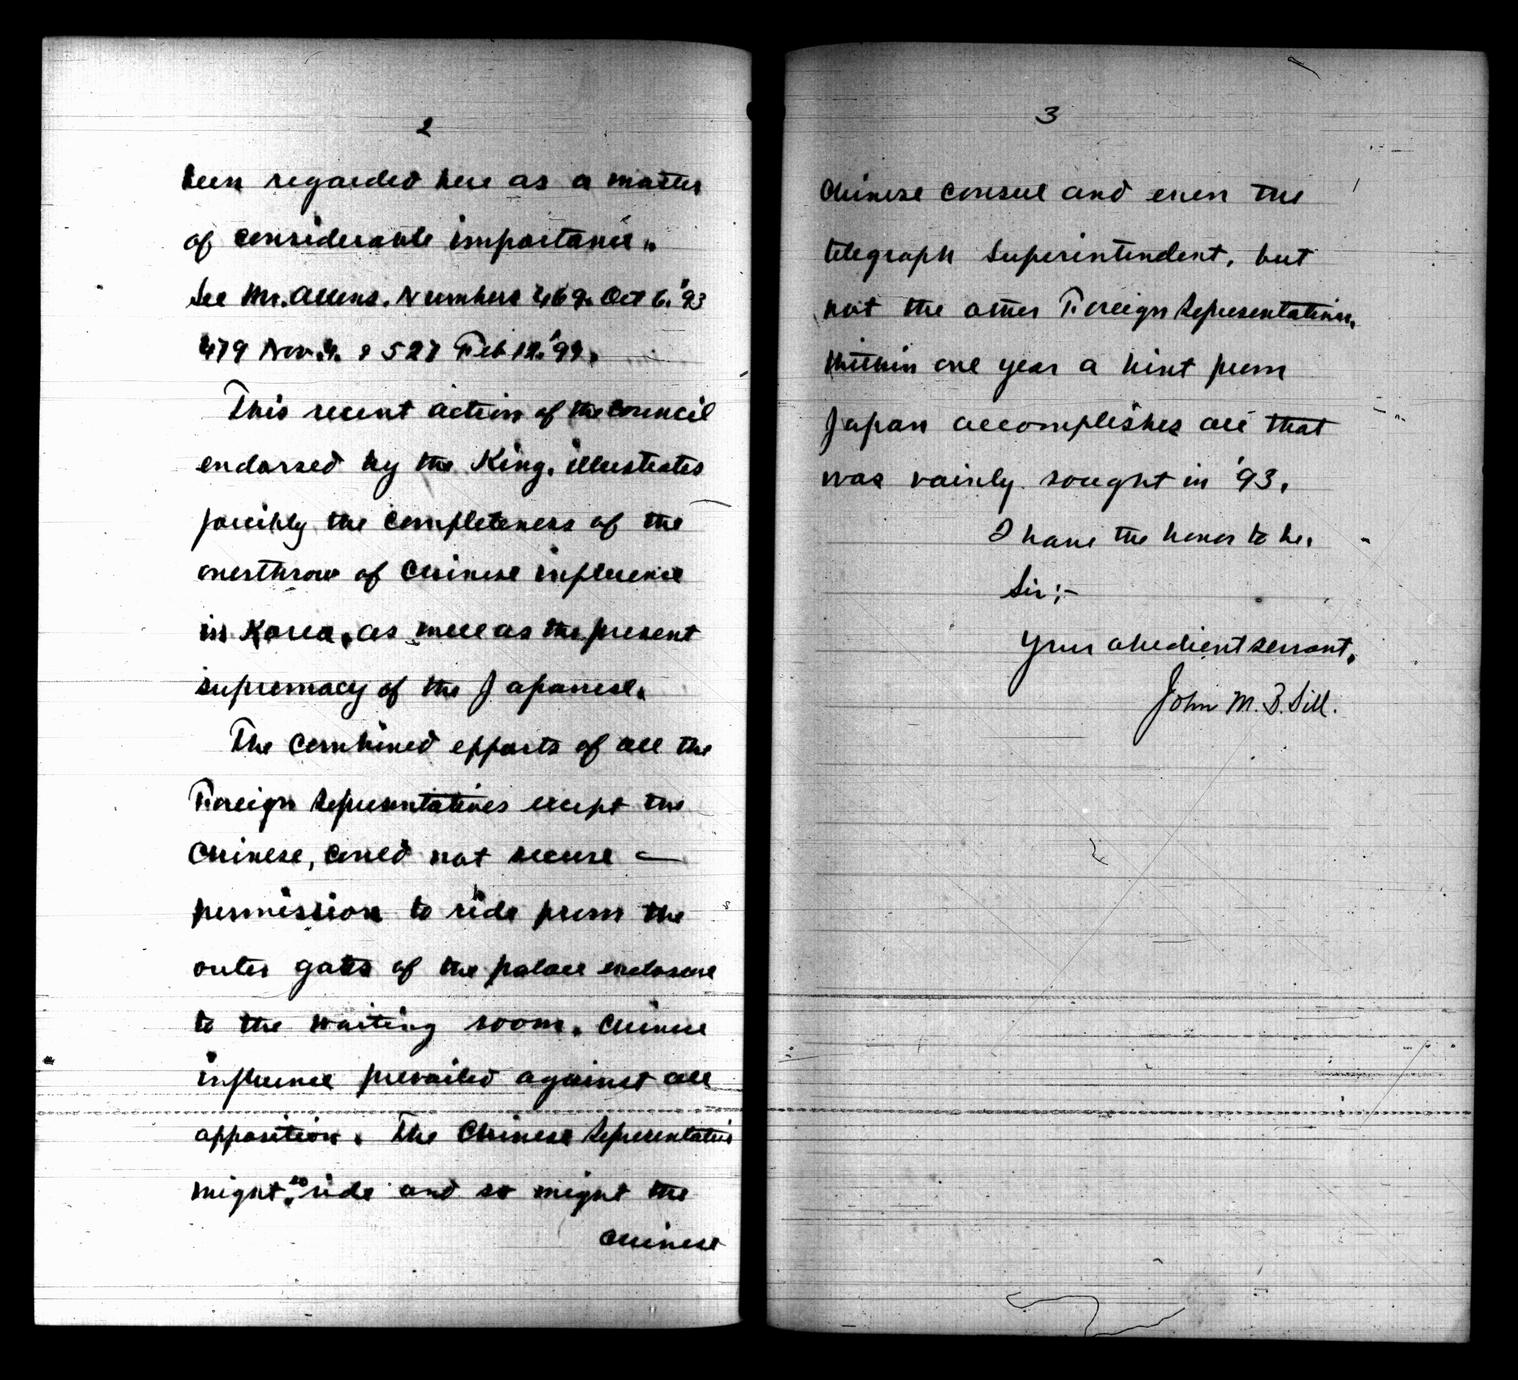 2
been regarded here as a matter
of considerable importance.
See Mr. Allens. Numbers 469. Oct 6. '93
479 Nov. 4. & 527 Feb 12. '94.
This recent action of the council
endorsed by the King, illustrates
forcibly the completeness of the
overthrow of Chinese influence
in Korea, as well as the present
supremacy of the Japanese.
The combined efforts of all the
Foreign Representatives except the
Chinese, could not secure —
permission to ride from the
outer gate of the palace enclosure
to the waiting room. Chinese
influence prevailed against all
opposition. The Chinese Representative
might so ride and so might the
Chinese
3
Chinese Consul and even the
telegraph Superintendent, but
not the other Foreign Representatives.
Within one year a hint from
Japan accomplishes all that
was vainly sought in '93.
I have the honor to be,
Sir:-
Your obedient servant,
John M. B. Sill.